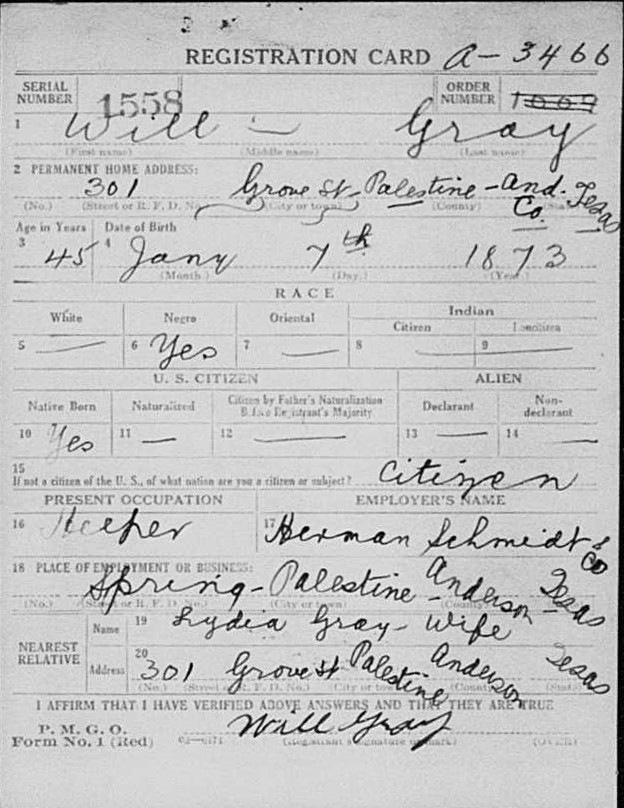 REGISTRATION CARD A-3466
SERIAL NUMBER 1558 ORDER NUMBER 1009
1 Will — Gray
(First name) (Middle name) (Last name)
2 PERMANENT HOME ADDRESS:
301 Grove St - Palestine - And. Co. Texas
(No.) (Street or R. F. D. No.) (City or town) (County) (State)
Age in Years Date of Birth
3 45 4 Jany 7th 1873
(Month) (Day) (Year)
RACE
White Negro Oriental Indian
Citizen Noncitizen
5 — 6 Yes 7 — 8 — 9 —
U. S. CITIZEN ALIEN
Native Born Naturalized Citizen by Father's Naturalization Before Registrant's Majority Declarant Non-declarant
10 Yes 11 — 12 — 13 — 14 —
15
If not a citizen of the U. S., of what nation are you a citizen or subject? Citizen
PRESENT OCCUPATION EMPLOYER'S NAME
16 17 Herman Schmidt & Co
18 PLACE OF EMPLOYMENT OR BUSINESS:
Spring - Palestine - Anderson Texas
(No.) (Street or R. F. D. No.) (City or town) (County) (State)
NEAREST RELATIVE Name 19 Lydia Gray - Wife
Address 20 301 Grove St Palestine Anderson Texas
(No.) (Street or R. F. D. No.) (City or town) (County) (State)
I AFFIRM THAT I HAVE VERIFIED ABOVE ANSWERS AND THAT THEY ARE TRUE
P. M. G. O.
Form No. 1 (Red) Will Gray
(Registrant's signature or mark) (OVER)